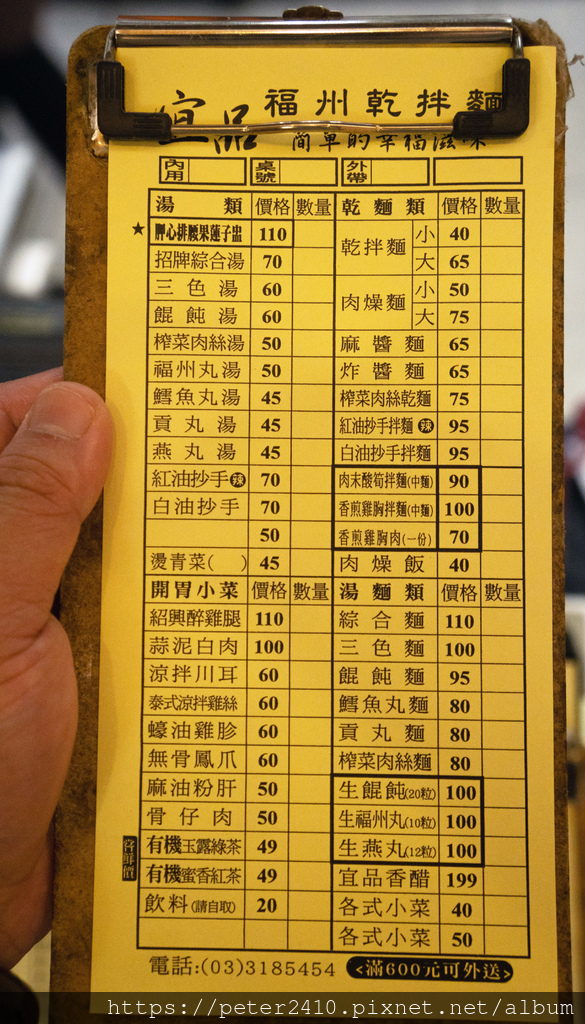 宜品 福州乾拌麵
簡單的幸福滋味
內用 桌號 外帶
湯類 價格 數量
★ 胛心排腰果蓮子盅 110
招牌綜合湯 70
三色湯 60
餛飩湯 60
榨菜肉絲湯 50
福州丸湯 50
鱈魚丸湯 45
貢丸湯 45
燕丸湯 45
紅油抄手辣 70
白油抄手 70
50
燙青菜( ) 45
開胃小菜 價格 數量
紹興醉雞腿 110
蒜泥白肉 100
涼拌川耳 60
泰式涼拌雞絲 60
蠔油雞胗 60
無骨鳳爪 60
麻油粉肝 50
骨仔肉 50
有機玉露綠茶 49
有機蜜香紅茶 49
飲料(請自取) 20
乾麵類 價格 數量
乾拌麵 小 40
大 65
肉燥麵 小 50
大 75
麻醬麵 65
炸醬麵 65
榨菜肉絲乾麵 75
紅油抄手拌麵辣 95
白油抄手拌麵 95
肉末酸筍拌麵(中麵) 90
香煎雞胸拌麵(中麵) 100
香煎雞胸肉(一份) 70
肉燥飯 40
湯麵類 價格 數量
綜合麵 110
三色麵 100
餛飩麵 95
鱈魚丸麵 80
貢丸麵 80
榨菜肉絲麵 80
生餛飩(20粒) 100
生福州丸(10粒) 100
生燕丸(12粒) 100
宜品香醋 199
各式小菜 40
各式小菜 50
電話:(03)3185454 <滿600元可外送>
https://peter2410.pixnet.net/album